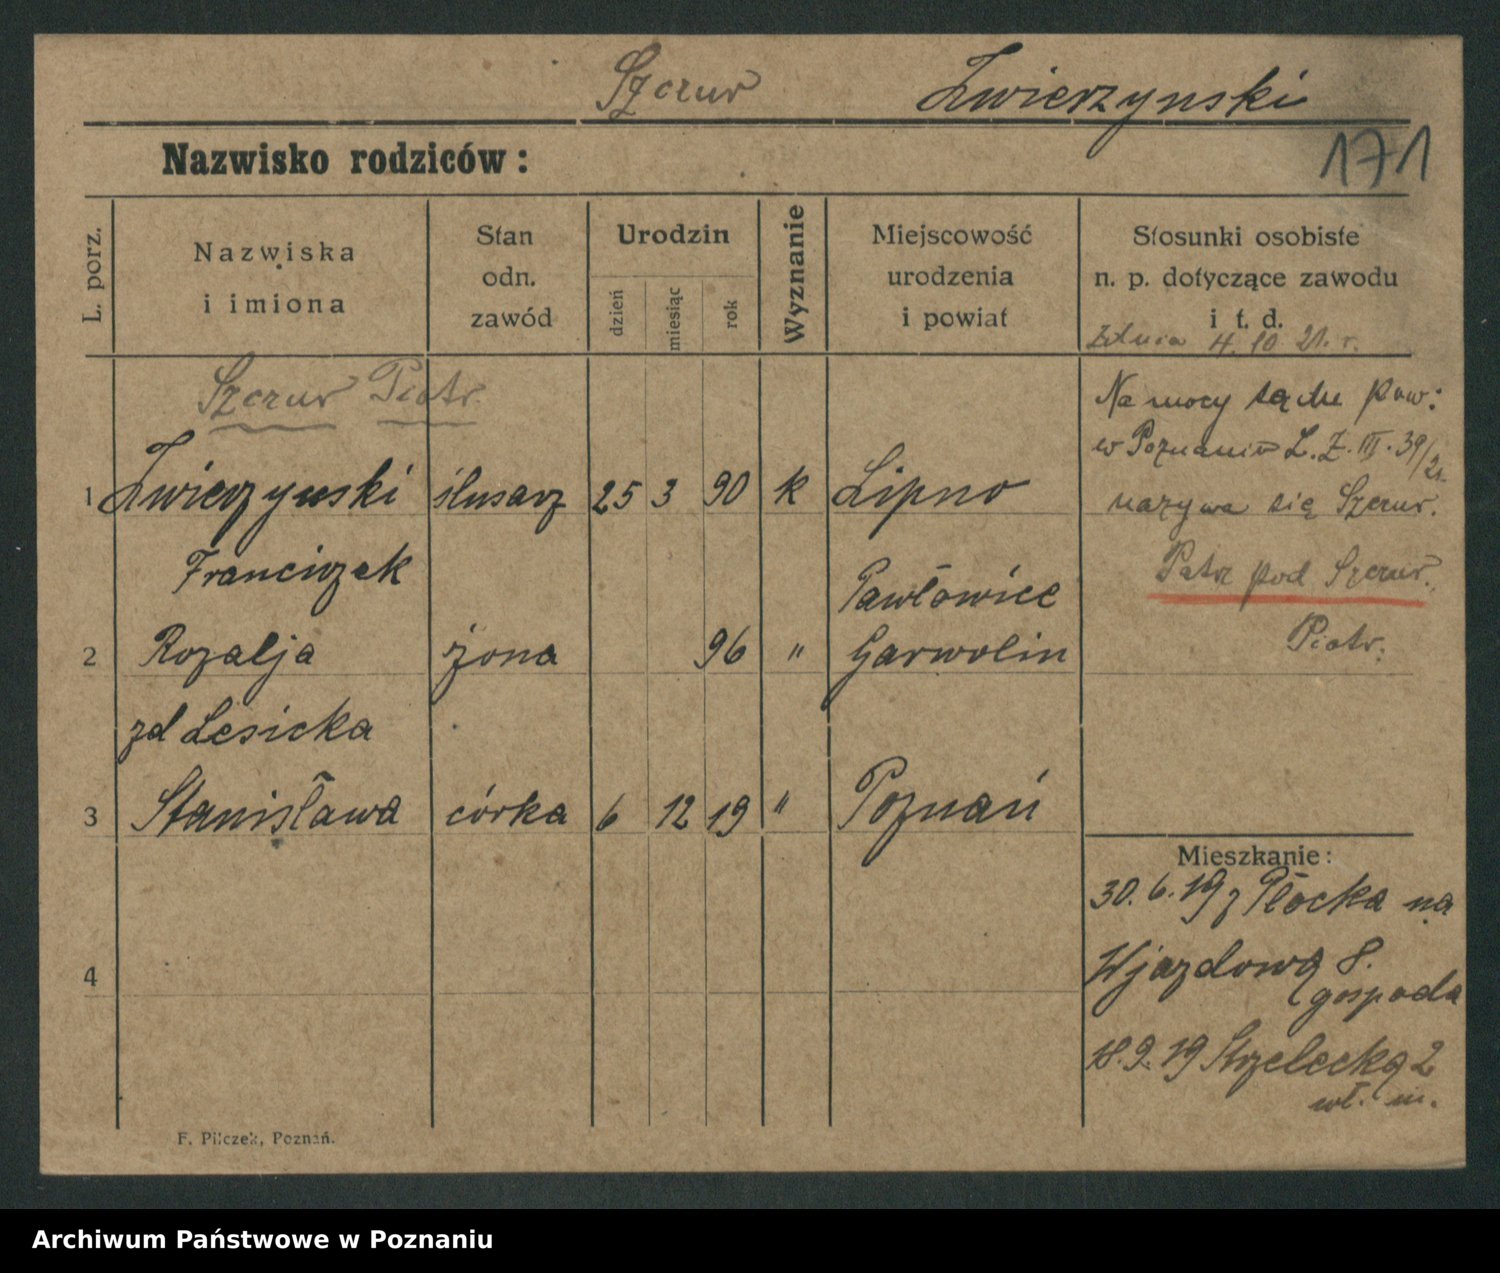 Szczur Zwierzynski
171
Nazwisko rodziców:
L. porz.
Nazwiska
i imiona
Stan
odn.
zawód
Urodzin
dzień
miesiąc
rok
Wyznanie
Miejscowość
urodzenia
i powiat
Stosunki osobiste
n. p. dotyczące zawodu
i t. d.
4. 10 21. r.
Szczur Piotr
Na mocy sądu pow:
w Poznaniu L. Z. III. 39/21.
1 Zwierzynski ślusarz 25 3 90 k Lipno
nazywa się Szczur.
Franciszek
Patrz pod Szczur.
Piotr.
Pawłowice
2 Rozalja żona 96 " Garwolin
zd Lesicka
3 Stanisława córka 6 12 19 " Poznań
Mieszkanie:
30. 6. 19 z Płocka na
Wjazdową 8.
gospoda
18. 9. 19 Strzelecką 2
wł. m.
4
F. Pilczek, Poznań.
Archiwum Państwowe w Poznaniu